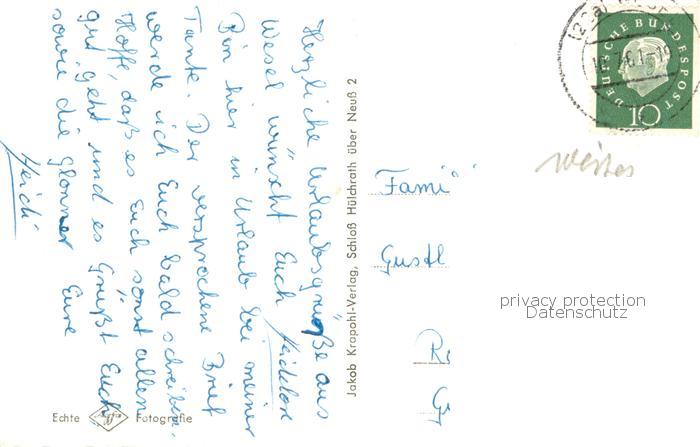 Herzliche Urlaubsgrüße aus
Wesel wünscht Euch Heidelore
Bin hier in Urlaub bei meiner
Tante. Der versprochene Brief
werde ich Euch bald schreiben.
Hoffe, daß es Euch sonst allen
gut geht und es Grüßt Euch
sowie die Glonner Eure
Heidi
Jakob Krapohl-Verlag, Schloß Hülchrath über Neuß 2
Echte Agfa Fotografie
DEUTSCHE BUNDESPOST
10
Fami
Gustl
privacy protection
Datenschutz